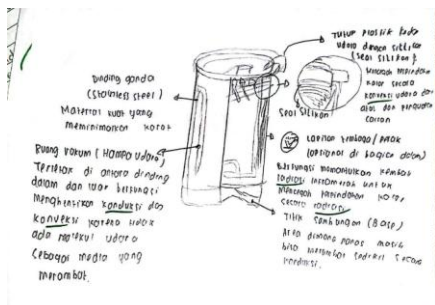 Dinding ganda
(Stainless steel)
Material kuat yang
meminimalkan korot
Ruang vakum (Hampa udara)
Terletak di antara dinding
dalam dan luar berfungsi
menghentikan konduksi dan
konveksi karena tidak
ada molekul udara
sebagai media yang
merambat.
Tutup plastik kedap
udara dengan silikon
(seal silikon).
Mencegah pindahan
kalor secara
konveksi udara dari
atas dan penguapan
cairan
seal silikon
Lapisan tembaga / perak
(optional di bagian dalam)
Berfungsi memantulkan kembali
radiasi inframerah untuk
mencegah perpindahan kalor
secara radiasi
Titik sambungan (Base)
Area dimana panas masih
bisa merambat sedikit secara
konduksi.